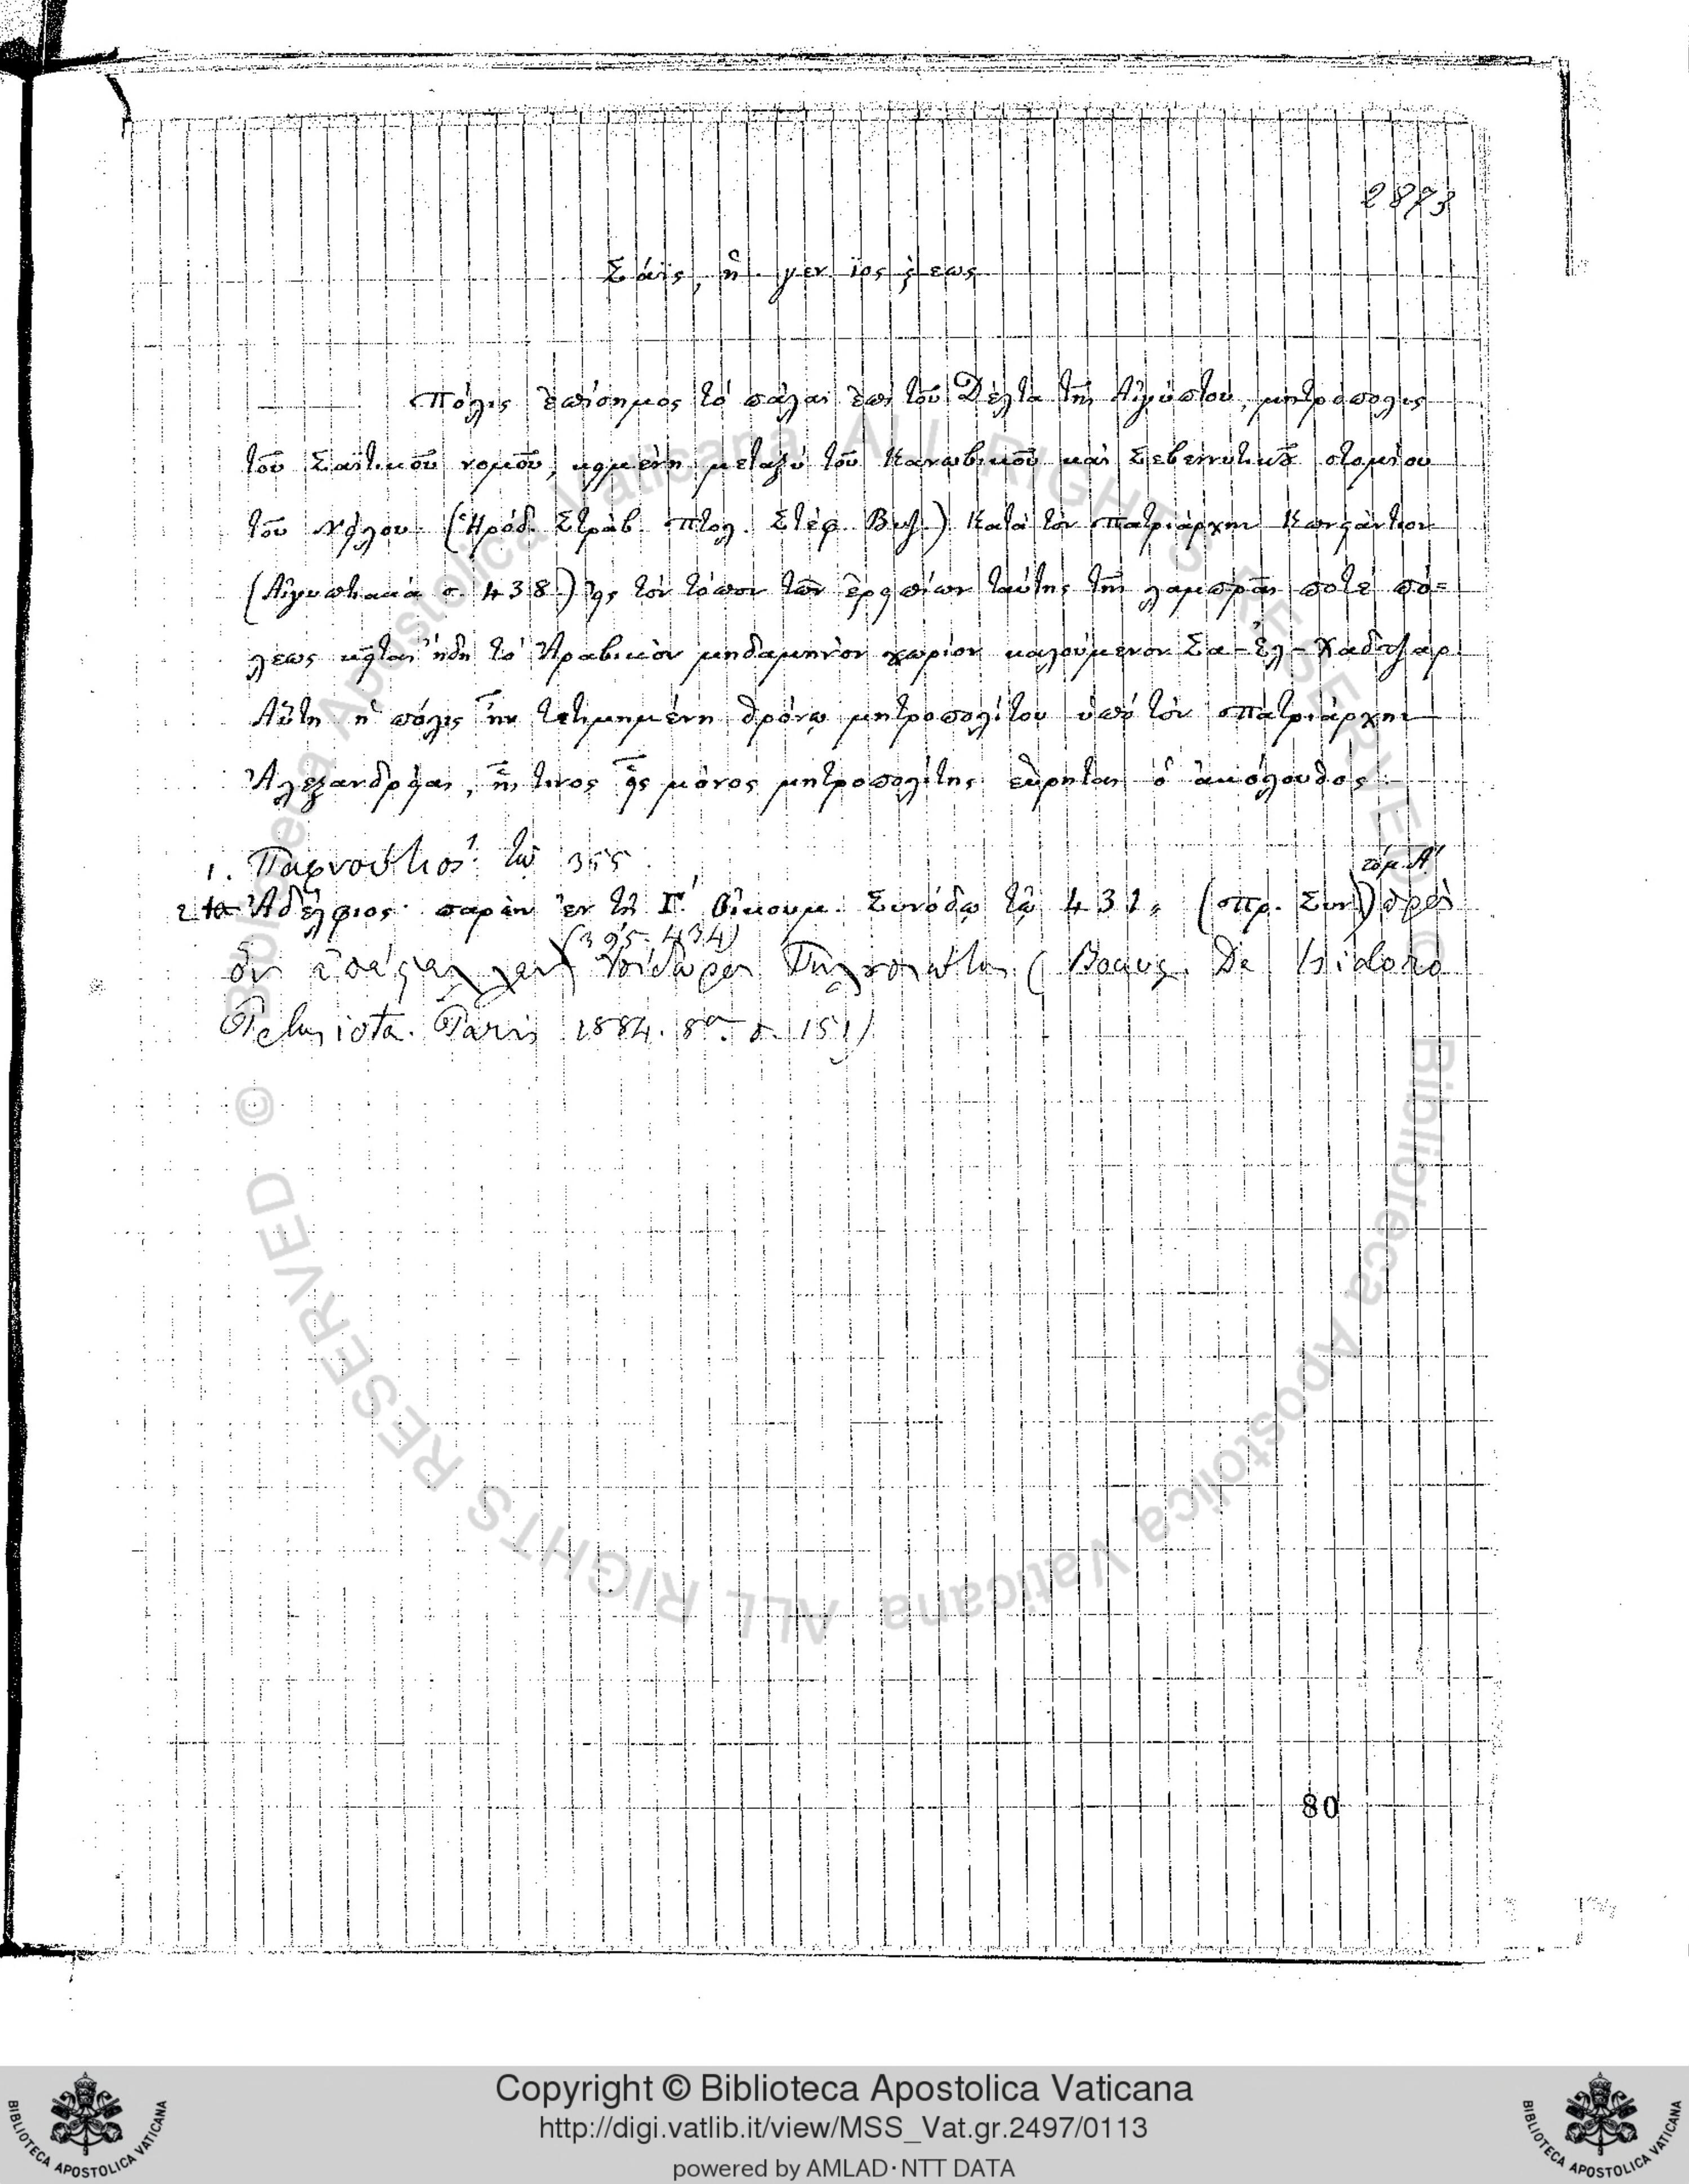 2873
Σάϊς, ἡ. γεν. ϊος ϛ εως
Πόλις ἐπίσημος τὸ πάλαι ἐπὶ τοῦ Δέλτα τῆς Αἰγύπτου, μητρόπολις
τοῦ Σαϊτικοῦ νομοῦ, κειμένη μεταξὺ τοῦ Κανωβικοῦ καὶ Σεβεννυτικοῦ στομίου
τοῦ Νείλου. (Ἡρόδ. Στράβ. Πτολ. Στέφ. Βυζ.) Κατὰ τὸν Πατριάρχην Κωνστάντιον
(Αἰγυπτιακὰ σ. 438.) εἰς τὸν τόπον τῶν ἐρειπίων ταύτης τῆς λαμπρᾶς ποτὲ πό=
λεως κεῖται ἤδη τὸ Ἀραβικὸν μηδαμινὸν χωρίον καλούμενον Σα-Ἐλ-Χαδτζαρ.
Αὕτη ἡ πόλις ἦν τετιμημένη θρόνῳ μητροπολίτου ὑπὸ τὸν Πατριάρχην
Ἀλεξανδρείας, ἧς τινος εἷς μόνος μητροπολίτης εὕρηται ὁ ἀκόλουθος.
1. Παφνούτιος. τῷ 355
τόμ. Α'
2. Ἀδέλφιος. παρὼν ἐν τῇ Γ'. Οἰκουμ. Συνόδῳ τῷ 431. (Πρ. Συν.)
(395-434)
Πηλουσιώτην (Bouvy. De Isidoro
Pelusiota. Paris 1884. 8ον. σ. 151)
80
Copyright © Biblioteca Apostolica Vaticana
http://digi.vatlib.it/view/MSS_Vat.gr.2497/0113
powered by AMLAD·NTT DATA